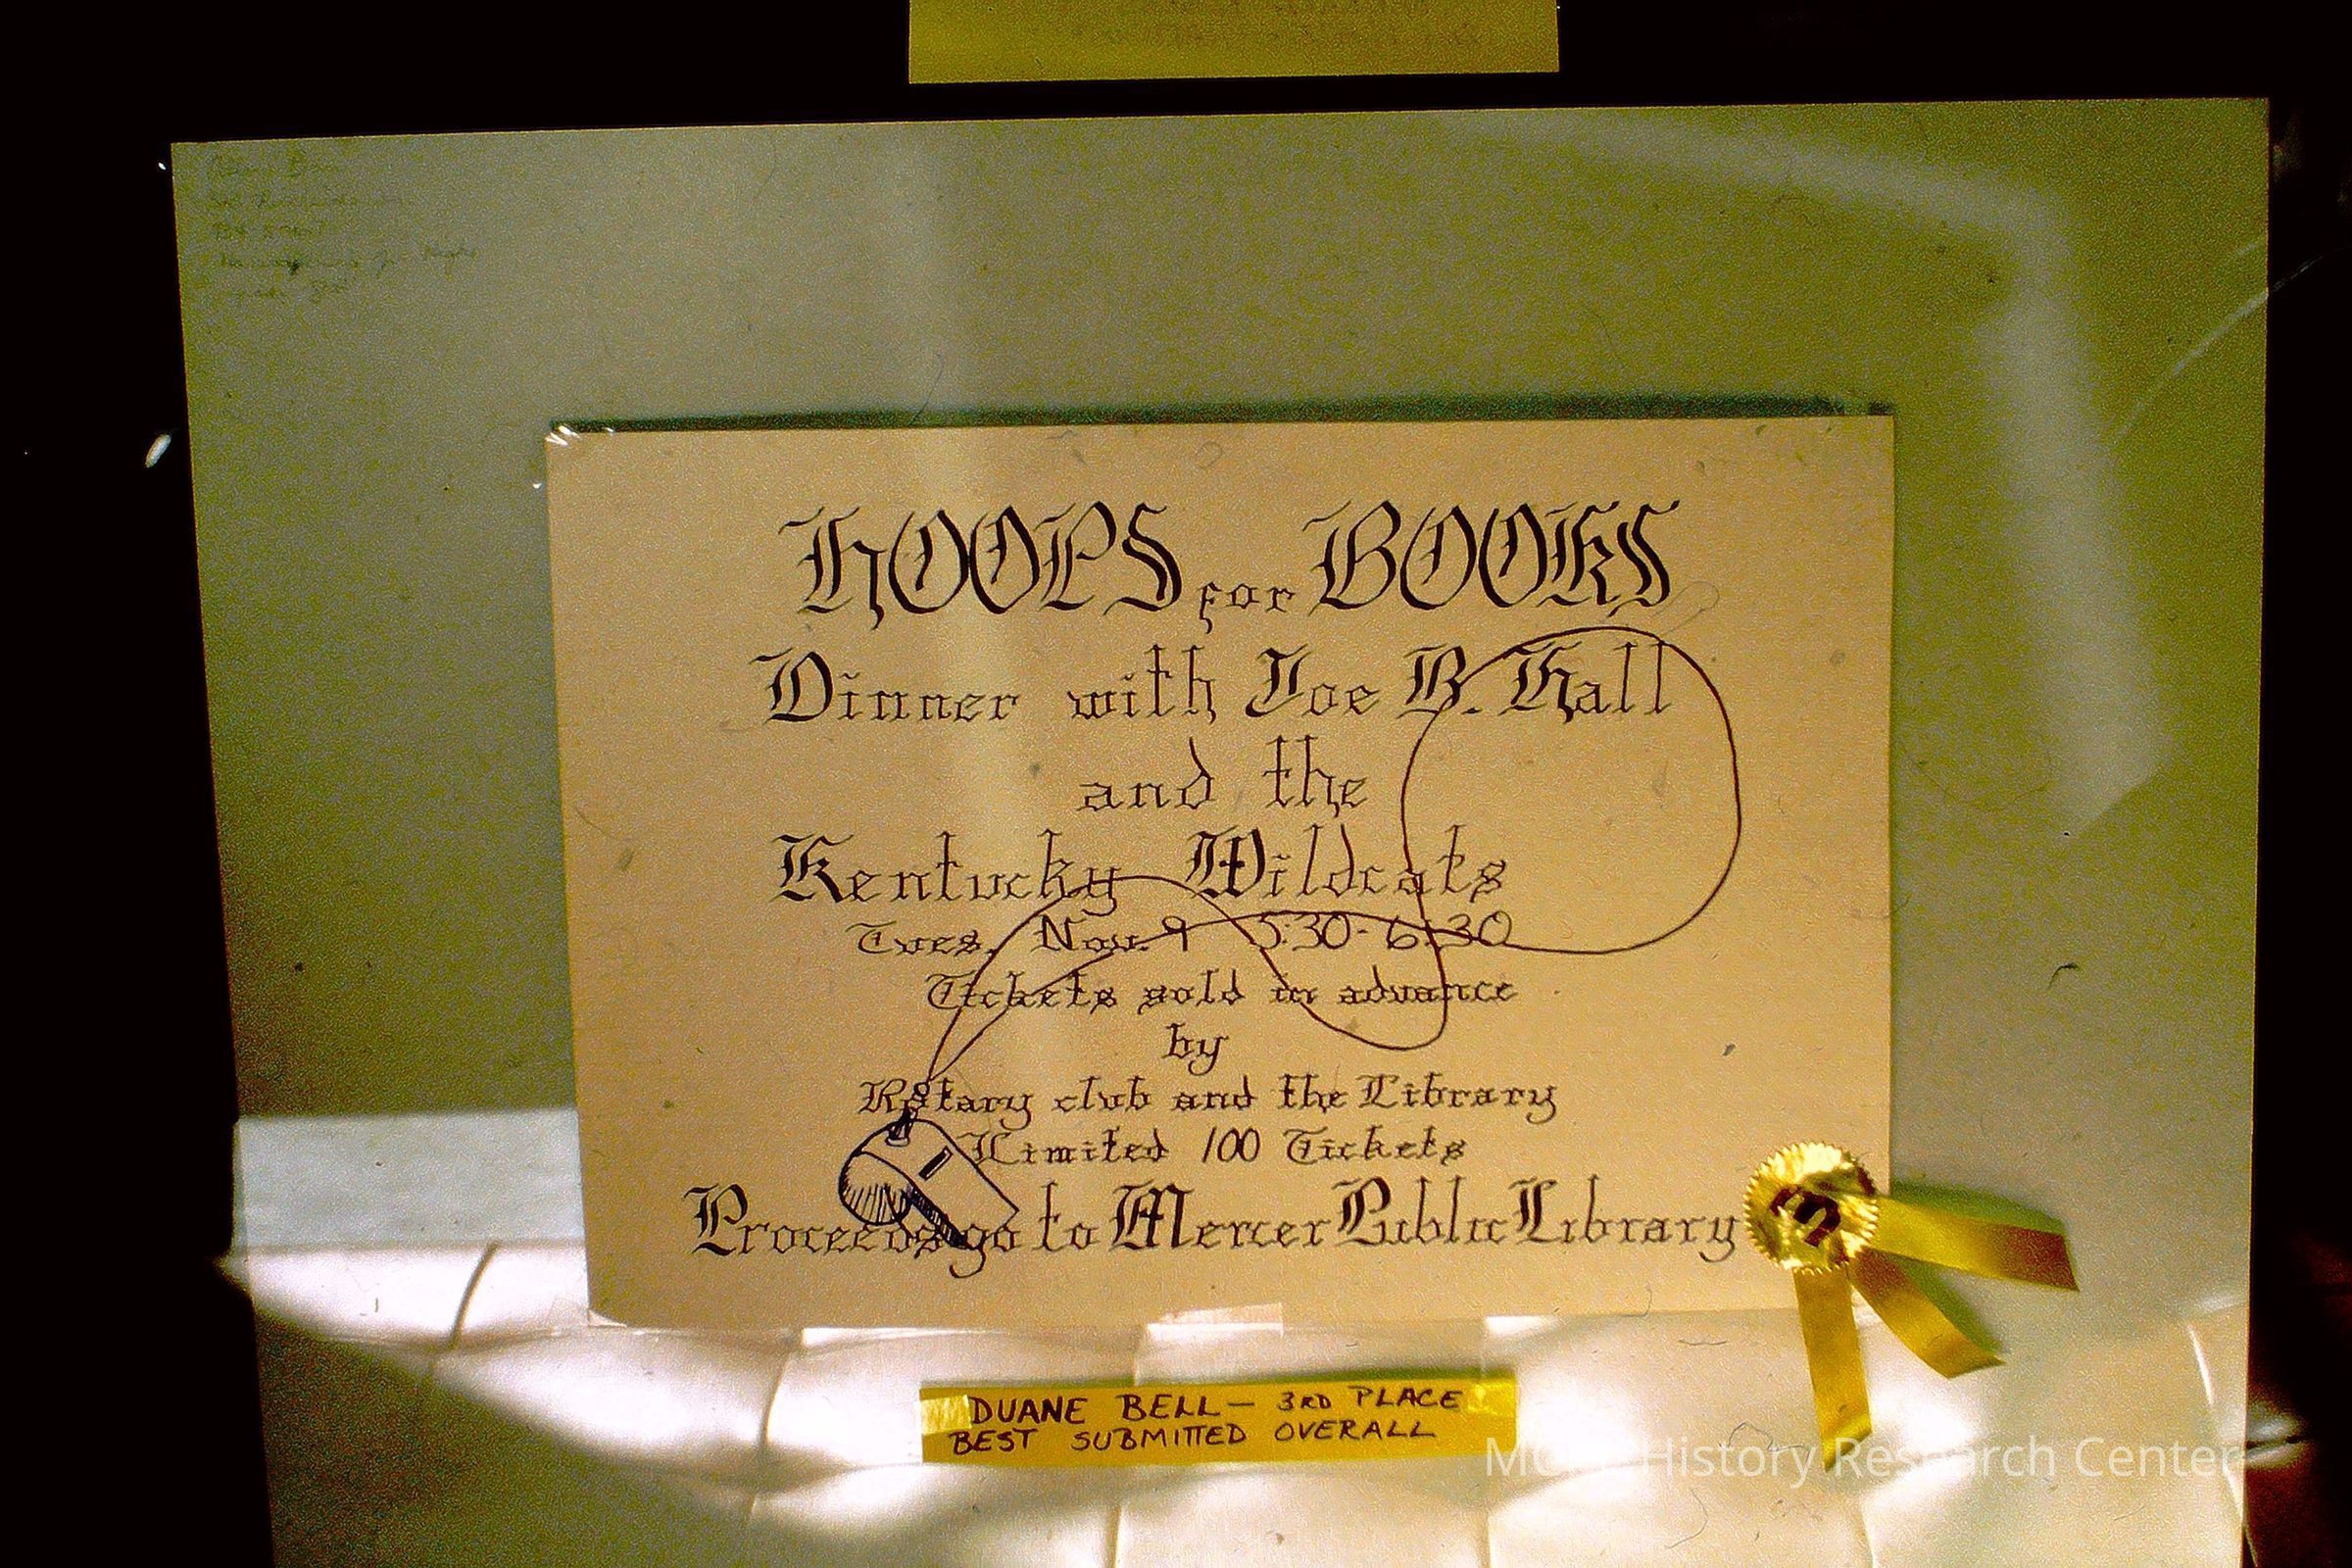 HOOPS for BOOKS
Dinner with Joe B. Hall
and the
Kentucky Wildcats
Tues. Nov. 9 5:30-6:30
Tickets sold in advance
by
Rotary club and the Library
Limited 100 Tickets
Proceeds go to Mercer Public Library
3
DUANE BELL — 3RD PLACE
BEST SUBMITTED OVERALL
History Research Center